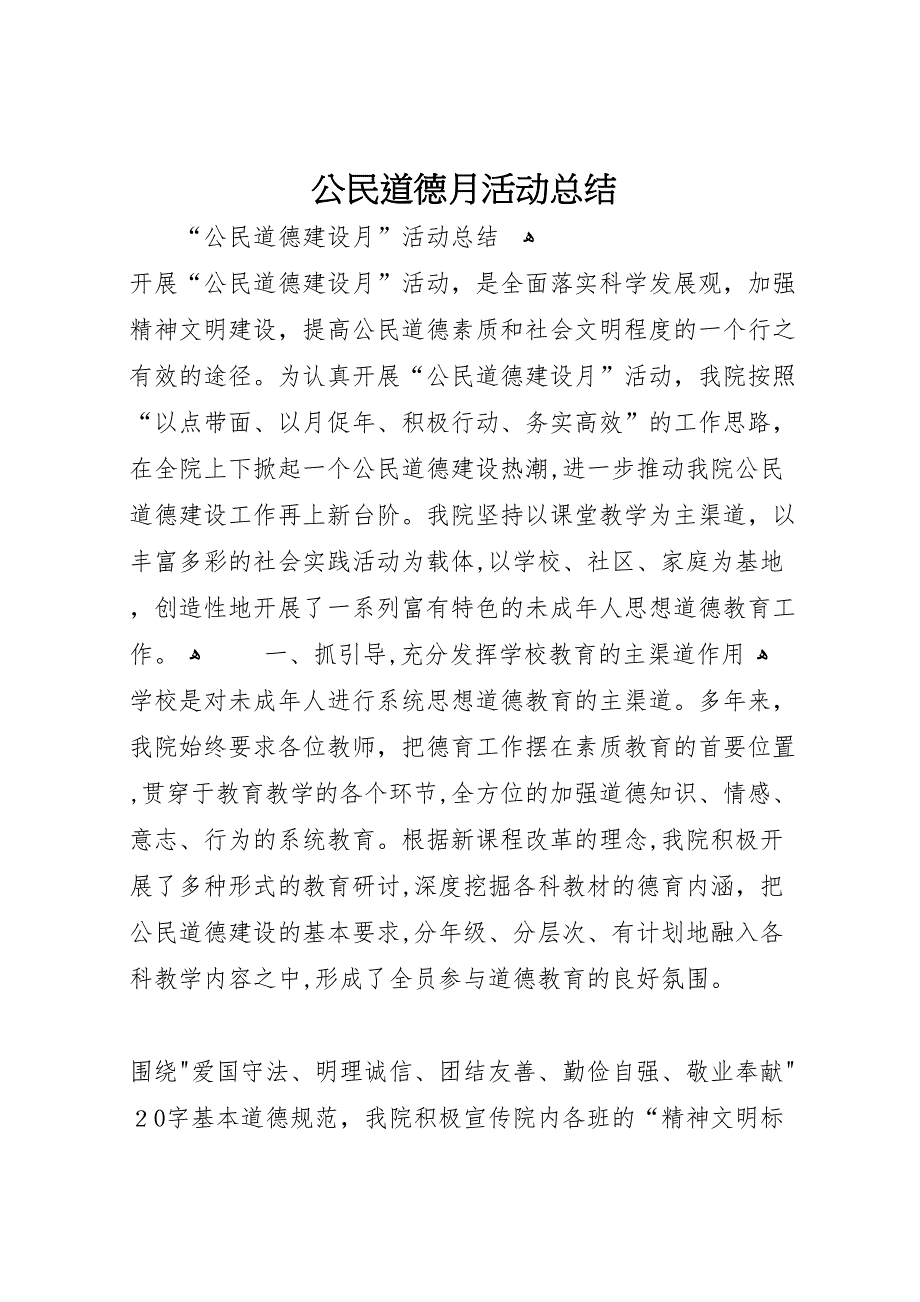 公民道德月活动总结
“公民道德建设月”活动总结 ﻫ
开展“公民道德建设月”活动，是全面落实科学发展观，加强
精神文明建设，提高公民道德素质和社会文明程度的一个行之
有效的途径。为认真开展“公民道德建设月”活动，我院按照
“以点带面、以月促年、积极行动、务实高效”的工作思路，
在全院上下掀起一个公民道德建设热潮,进一步推动我院公民
道德建设工作再上新台阶。我院坚持以课堂教学为主渠道，以
丰富多彩的社会实践活动为载体,以学校、社区、家庭为基地
，创造性地开展了一系列富有特色的未成年人思想道德教育工
作。 ﻫ 一、抓引导,充分发挥学校教育的主渠道作用 ﻫ
学校是对未成年人进行系统思想道德教育的主渠道。多年来，
我院始终要求各位教师，把德育工作摆在素质教育的首要位置
,贯穿于教育教学的各个环节,全方位的加强道德知识、情感、
意志、行为的系统教育。根据新课程改革的理念,我院积极开
展了多种形式的教育研讨,深度挖掘各科教材的德育内涵，把
公民道德建设的基本要求,分年级、分层次、有计划地融入各
科教学内容之中,形成了全员参与道德教育的良好氛围。
围绕"爱国守法、明理诚信、团结友善、勤俭自强、敬业奉献"
20字基本道德规范，我院积极宣传院内各班的“精神文明标